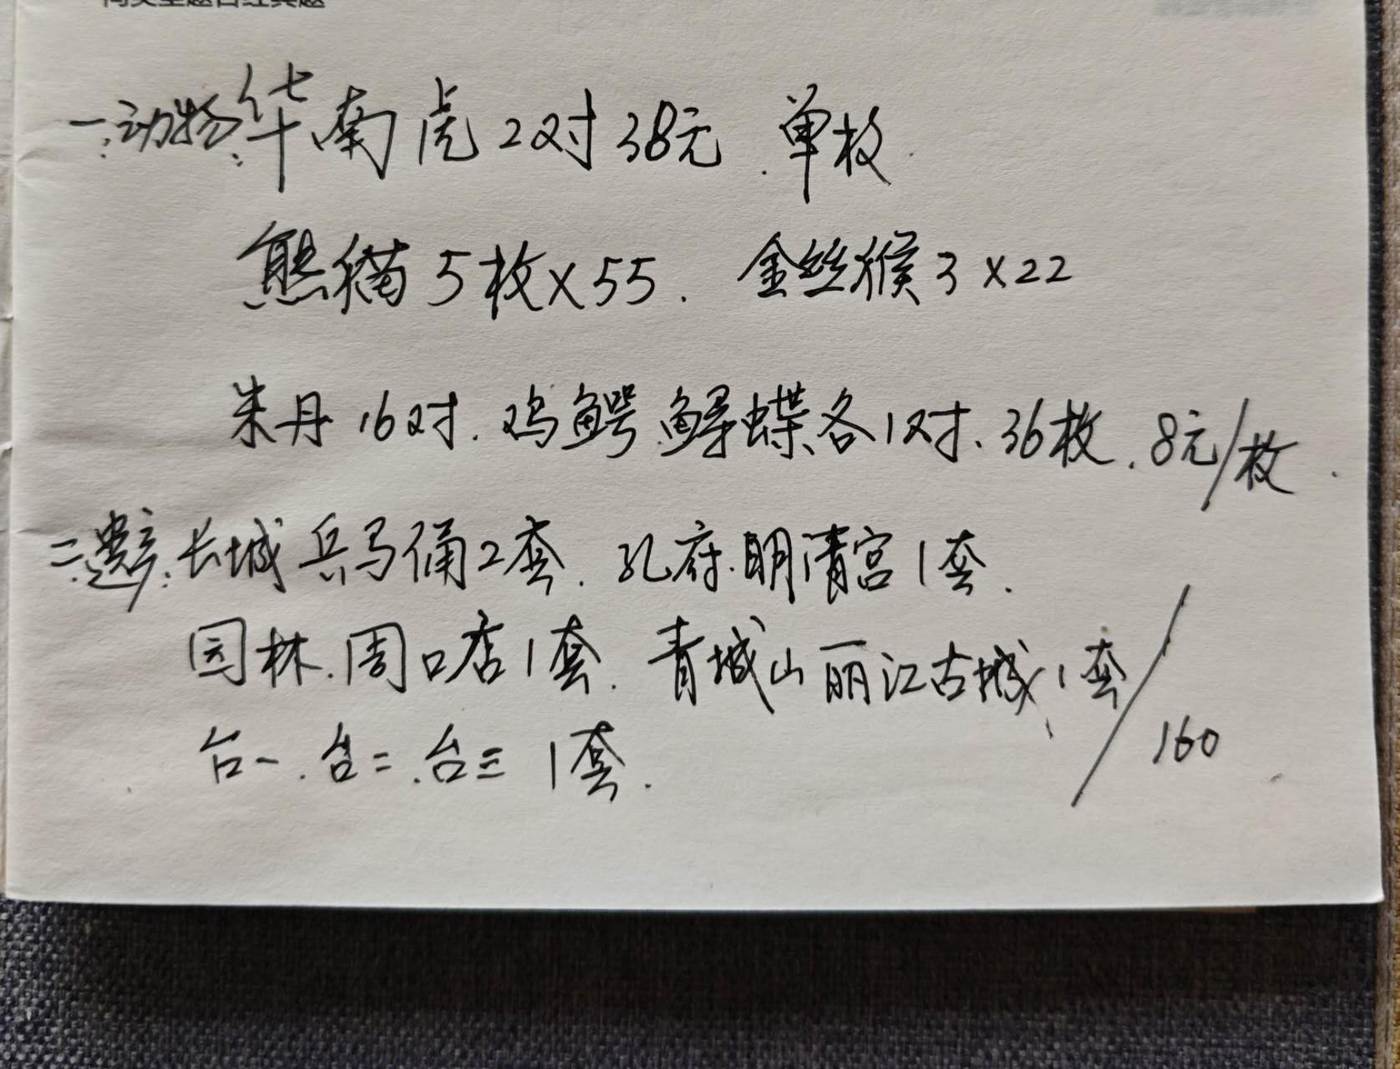 一:动物:华南虎2对38元.单枚.
熊猫5枚X55. 金丝猴3X22
朱丹16对.鸡鳄.鲟蝶各1对.36枚.8元/枚.
二:遗产:长城兵马俑2套.孔府.明清宫1套.
园林.周口店1套.青城山丽江古城1套/160
台一.台二.台三1套.